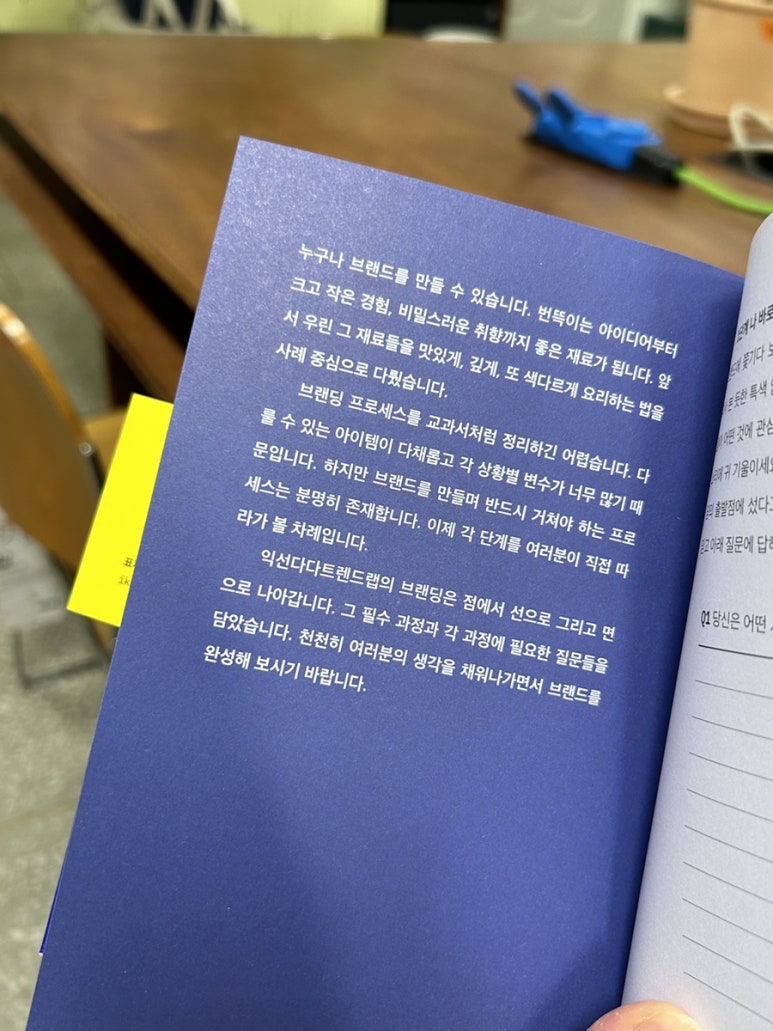 누구나 브랜드를 만들 수 있습니다. 번뜩이는 아이디어부터
크고 작은 경험, 비밀스러운 취향까지 좋은 재료가 됩니다. 앞
서 우린 그 재료들을 맛있게, 깊게, 또 색다르게 요리하는 법을
사례 중심으로 다뤘습니다.
브랜딩 프로세스를 교과서처럼 정리하긴 어렵습니다. 다
룰 수 있는 아이템이 다채롭고 각 상황별 변수가 너무 많기 때
문입니다. 하지만 브랜드를 만들며 반드시 거쳐야 하는 프로
세스는 분명히 존재합니다. 이제 각 단계를 여러분이 직접 따
라가 볼 차례입니다.
익선다다트렌드랩의 브랜딩은 점에서 선으로 그리고 면
으로 나아갑니다. 그 필수 과정과 각 과정에 필요한 질문들을
담았습니다. 천천히 여러분의 생각을 채워나가면서 브랜드를
완성해 보시기 바랍니다.
나 바로
꽃기다
듯한 특색
어떤 것에 관심
귀 기울이세요
출발점에 섰다고
아래 질문에 답
Q1 당신은 어떤